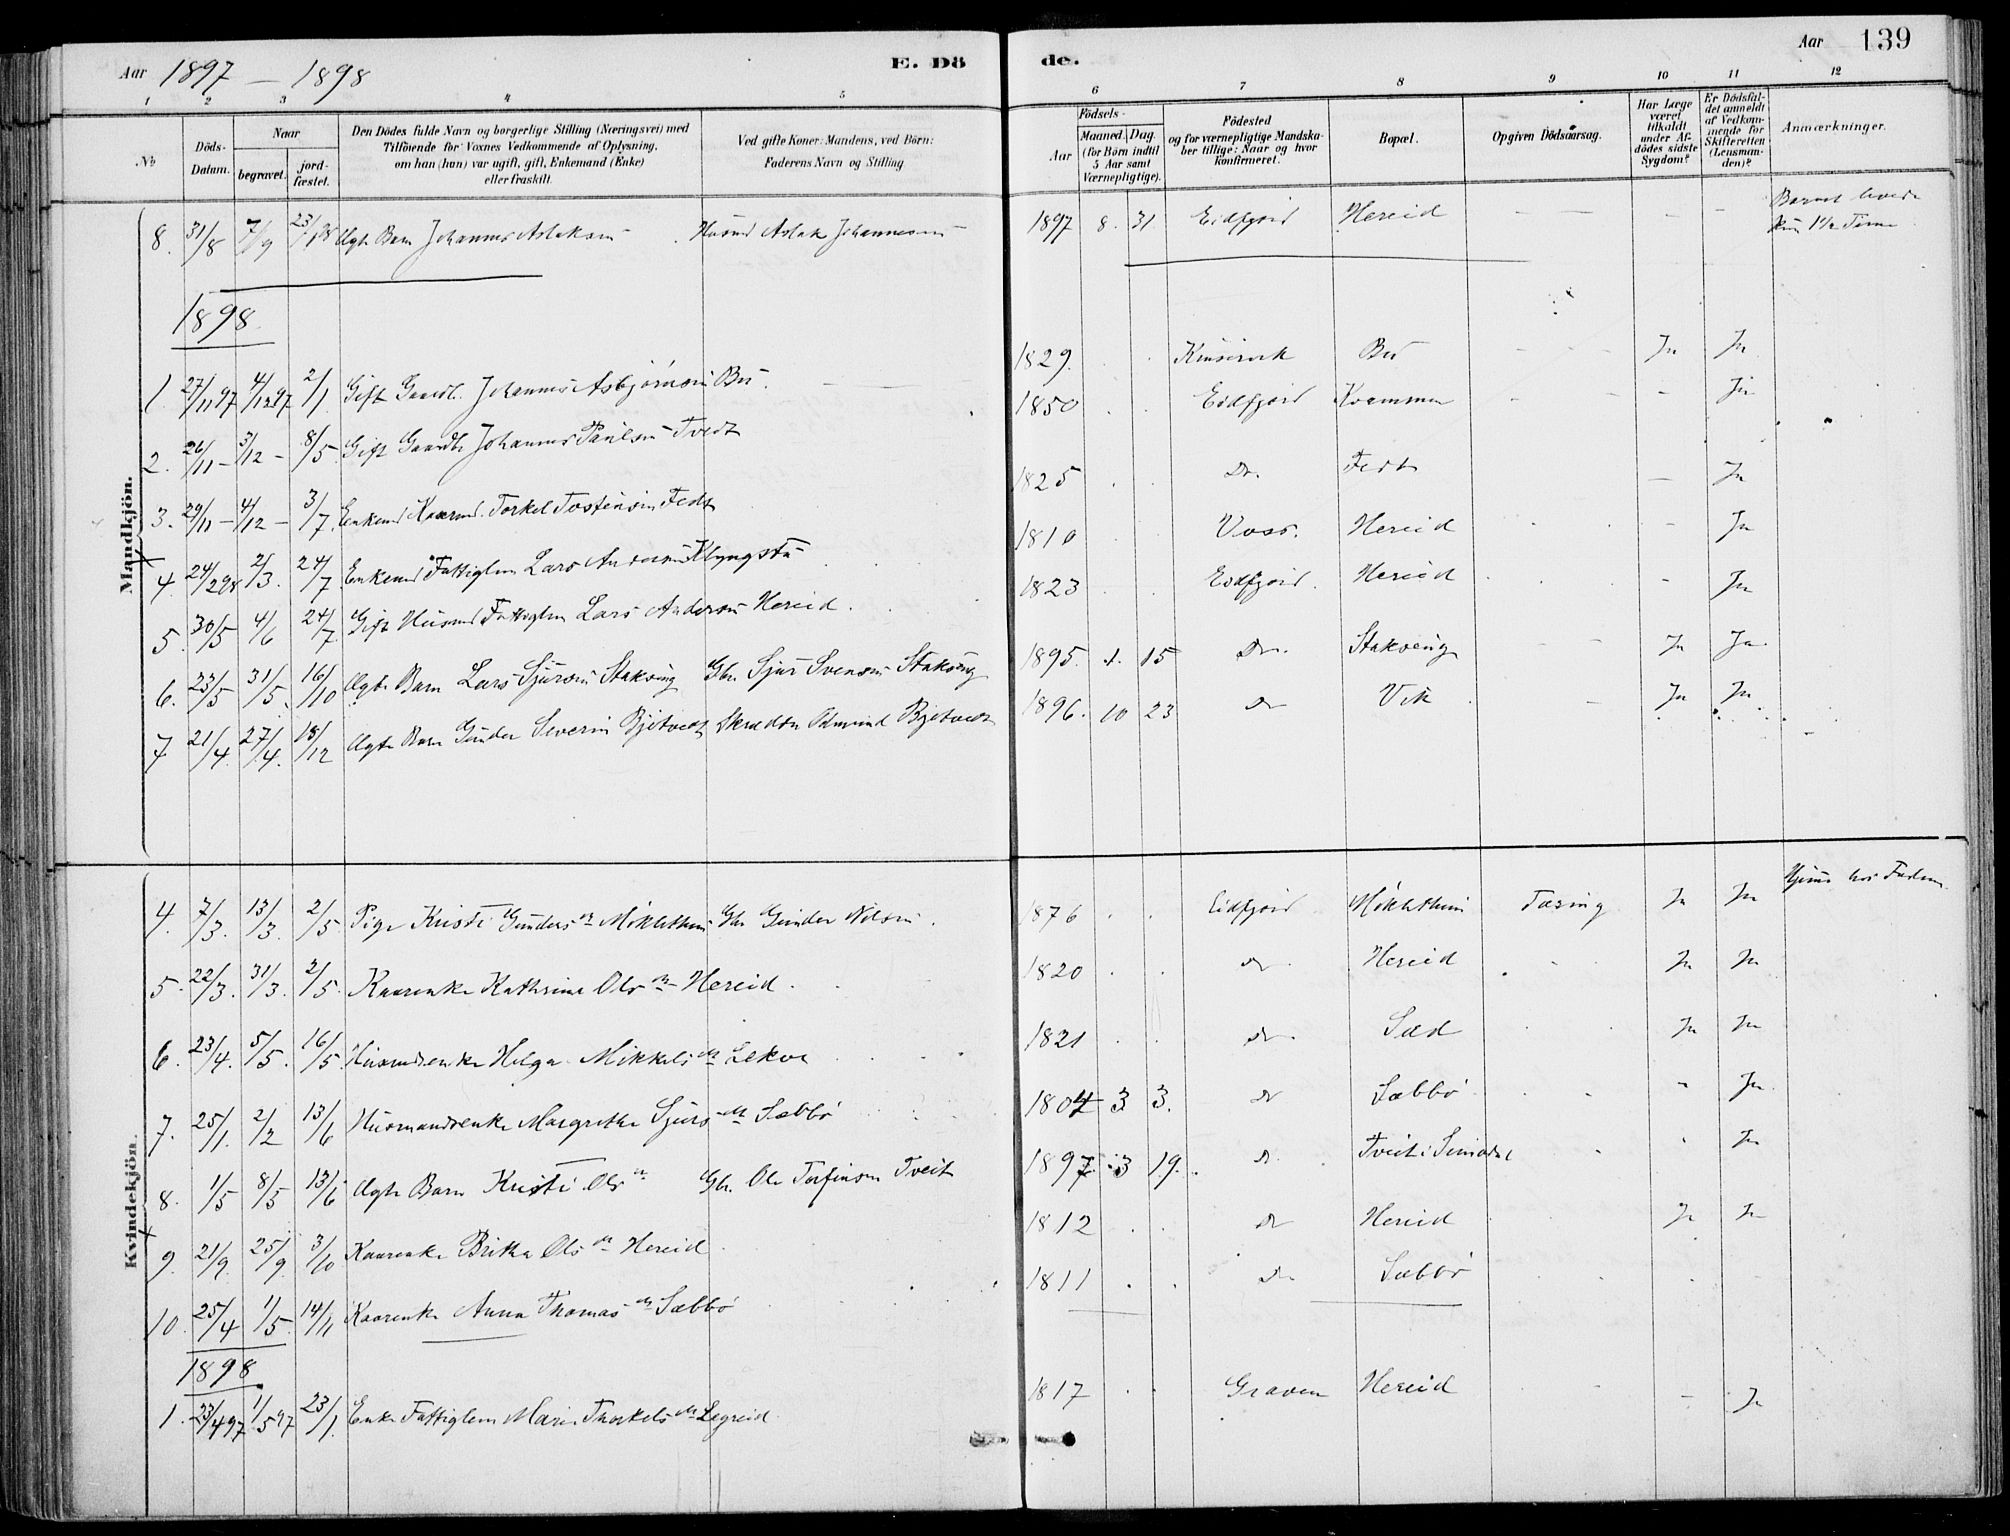 Aar 1897 – 1898 E. Dö de. Aar 139
1 2 3 4 5 6 7 8 9 10 11 12
№
Döds-Datum.
Naar
begravet.
jord-fæstet.
Den Dödes fulde Navn og borgerlige Stilling (Næringsvei) med
Tilföiende for Voxnes Vedkommende af Oplysning,
om han (hun) var ugift, gift, Enkemand (Enke)
eller fraskilt.
Ved gifte Koner: Mandens, ved Börn:
Faderens Navn og Stilling.
Födsels-
Aar
Maaned. Dag.
(for Börn indtil
5 Aar samt
Værnepligtige).
Födested
og for værnepligtige Mandska-
ber tillige: Naar og hvor
konfirmeret.
Bopæl.
Opgiven Dödsaarsag.
Har Læge
været
tilkaldt
under Af-
dödes sidste
Sygdom?
Er Dödsfal-
det anmeldt
af Vedkom-
mende for
Skifteretten
(Lensman-
den)?
Anmærkninger.
Mandkjön.
8. 31/8 7/9 23/1 98 Ægte Barn Johannes Aslaksen Husmd Aslak Johannesen 1897 8. 31 Eidfjord Hereid – – – – Barnet levede kun 1 1/2 Time
1898
1 27/11 97 4/12 97 2/1 Gift Gaardb. Johannes Asbjörnsen Bu. 1829. Kinservik Bu – Ja Ja
2. 26/11 – 3/12 – 8/5 Gift Gaardbr Johannes Paulsen Tvedt 1850 Eidfjord Kvammen – – Ja
3. 29/11 – 4/12 – 3/7 Enkemd Kaarmd. Torkel Tostensen Fedt 1825 Do. Fedt – Ja
4. 24/2 98 2/3. 24/7 Enkemd Fattiglem Lars Andersen Klyngstu 1810 Voss. Hereid – Ja
5. 30/5 4/6 24/7 Gift Husmd Fattiglem Lars Andersen Hereid. 1823 Eidfjord. Hereid – Ja
6. 23/5 31/5. 16/10 Ægte Barn Lars Sjursen Stakseng Gbr. Sjur Svensen Stakseng 1895. 1. 15 Do. Stakseng – Ja Ja
7. 21/4. 27/4. 18/12 Ægte Barn Gunder Severin Bjotvedt Skrædder Odmund Bjotvedt 1896. 10 23 Do Vik – Ja Ja
Kvindekjön.
4. 7/3. 13/3. 2/5 Pige Kristi Gundersdr Möklethun Gbr Gunder Nilsen. 1876 Eidfjord Möklethun Tæring Ja Ja Hjemme hos Faderen
5. 22/3. 31/3. 2/5. Kaarenke Kathrine Olsdr Hereid. 1820 do Hereid Ja Ja
6. 23/4. 5/5. 16/5. Husmdsenke Helga Mikkelsdr Lekve 1821 do. Sæd Ja Ja
7. 25/1. 2/2 13/6 Husmandsenke Margrethe Sjursdtr Sæbbö 1804 3 3. do Sæbbö – Ja
8. 1/5 8/5 13/6 Ægte Barn Kristi Olsdr Gbr. Ole Torfinsen Tveit 1897 3 19. do. Tveit i Simodal Ja
9. 21/9 25/9 3/10 Kaarenke Britha Olsdr Hereid 1812 do Hereid Ja Ja
10. 25/4 1/5. 14/11 Kaarenke Anna Thomasdr Sæbbö 1811 do Sæbbö
1898
1. 23/4 97 1/5 97 23/1. Enke Fattiglem Mari Thorkelsdtr Legreid 1817 Graven Hereid – Ja